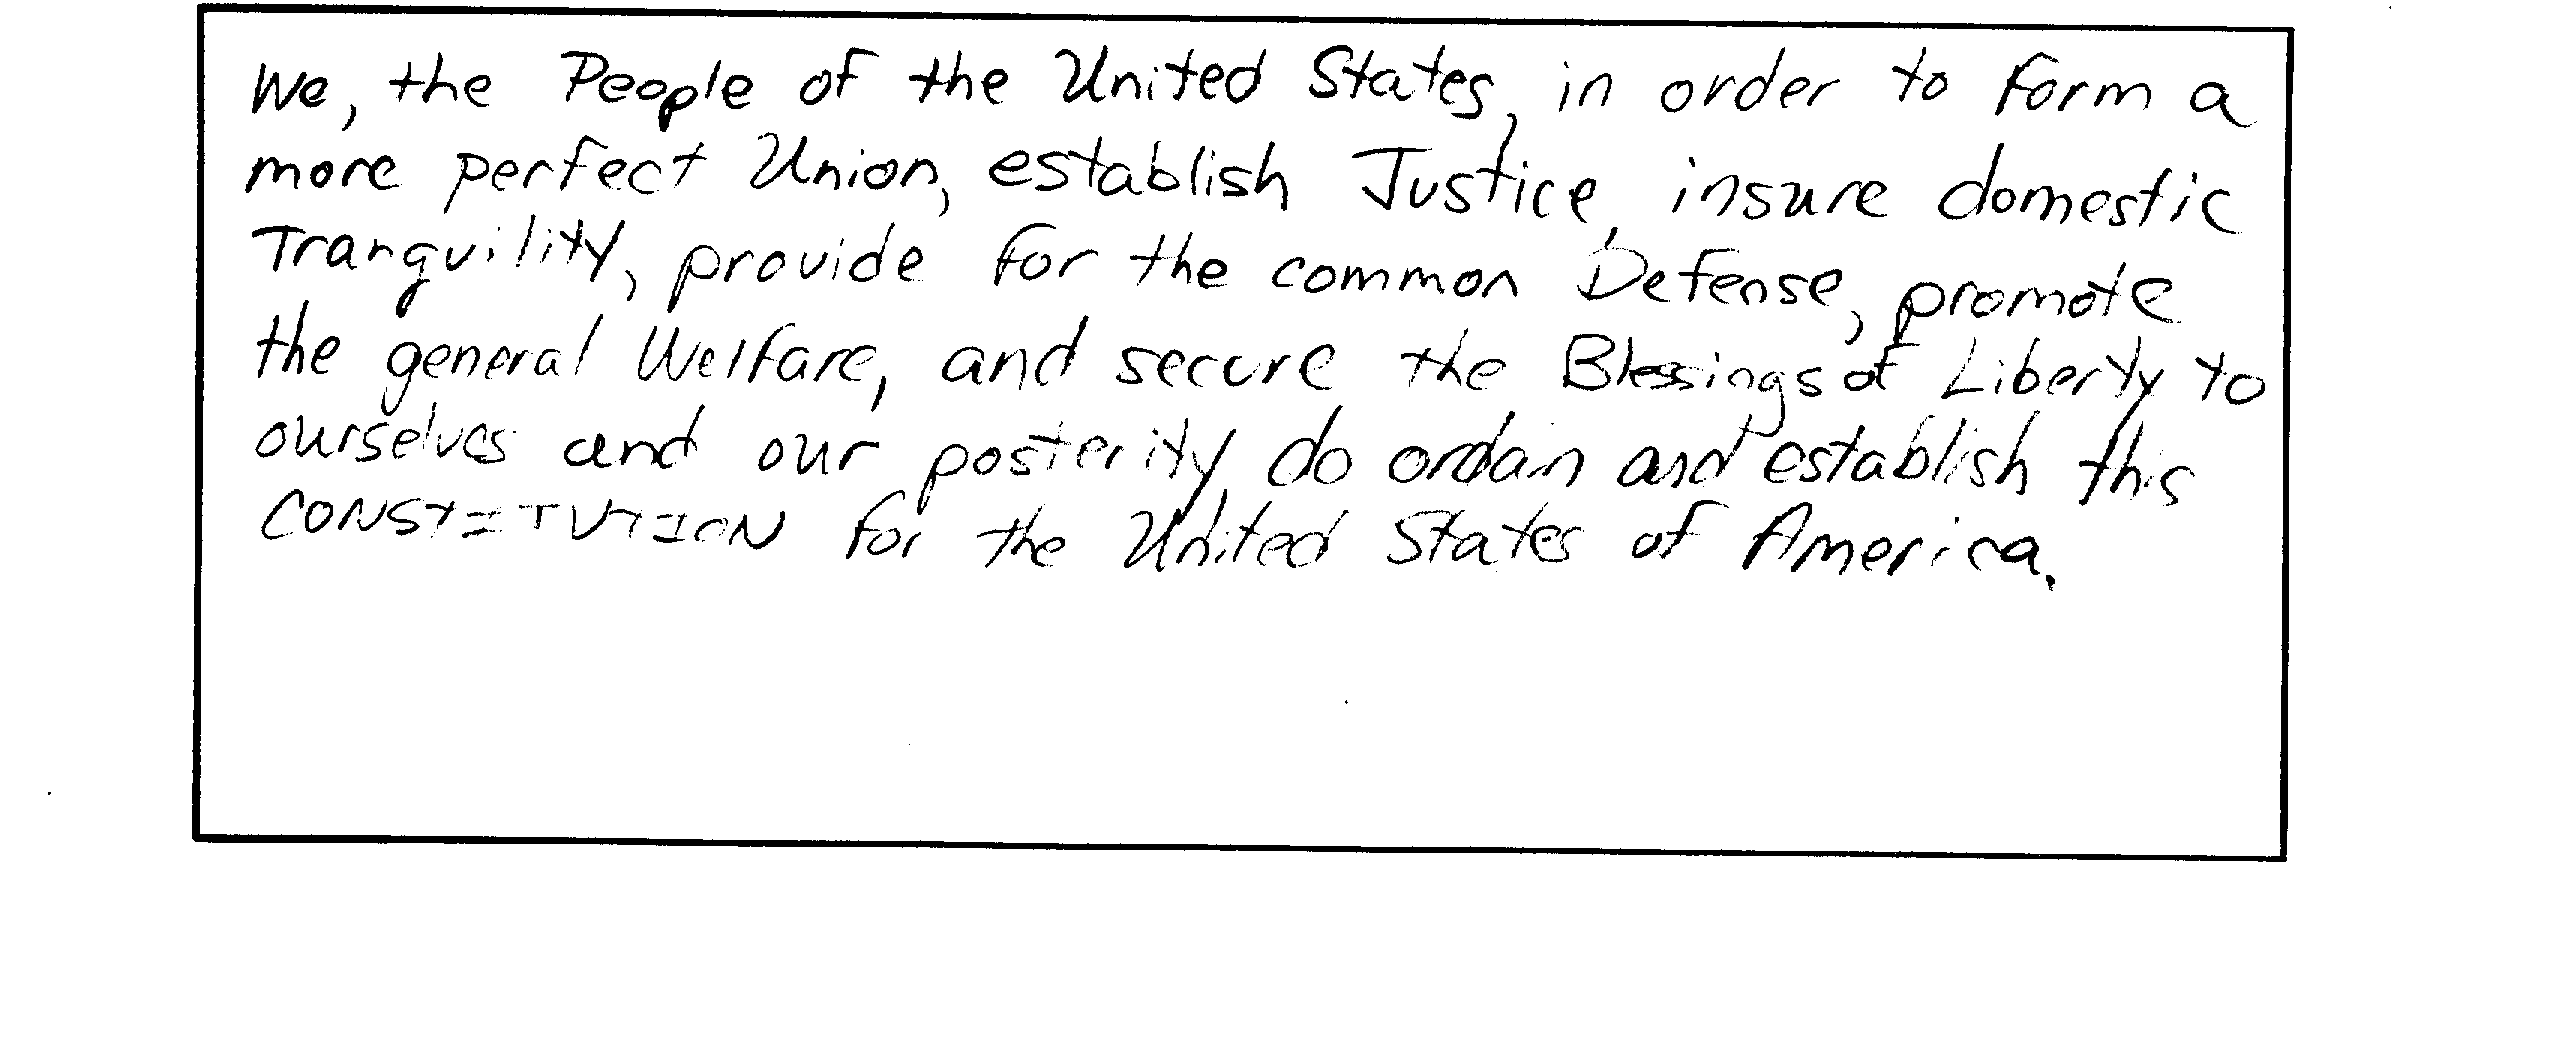 We, the People of the United States, in order to form a
more perfect Union, establish Justice, insure domestic
Tranquility, provide for the common Defense, promote
the general Welfare, and secure the Blessings of Liberty to
ourselves and our posterity, do ordain and establish this
CONSTITUTION for the United States of America.